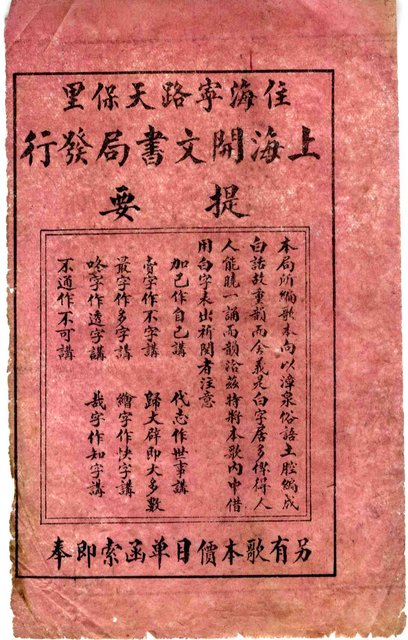 住海寧路天保里
上海開文書局發行
提要
本局所編歌本向以漳泉俗語土腔編成
白話故重韻而舍義是白字居多俾得人
人能曉一誦而韻洽茲特將本歌內中借
用白字表出祈閱者注意
加己作自己講　代志作世事講
賣字作不字講　歸大群即大多數
最字作多字講　繪字作快字講
咚字作透字講　哉字作知字講
不通作不可講
另有歌本價目单函索即奉